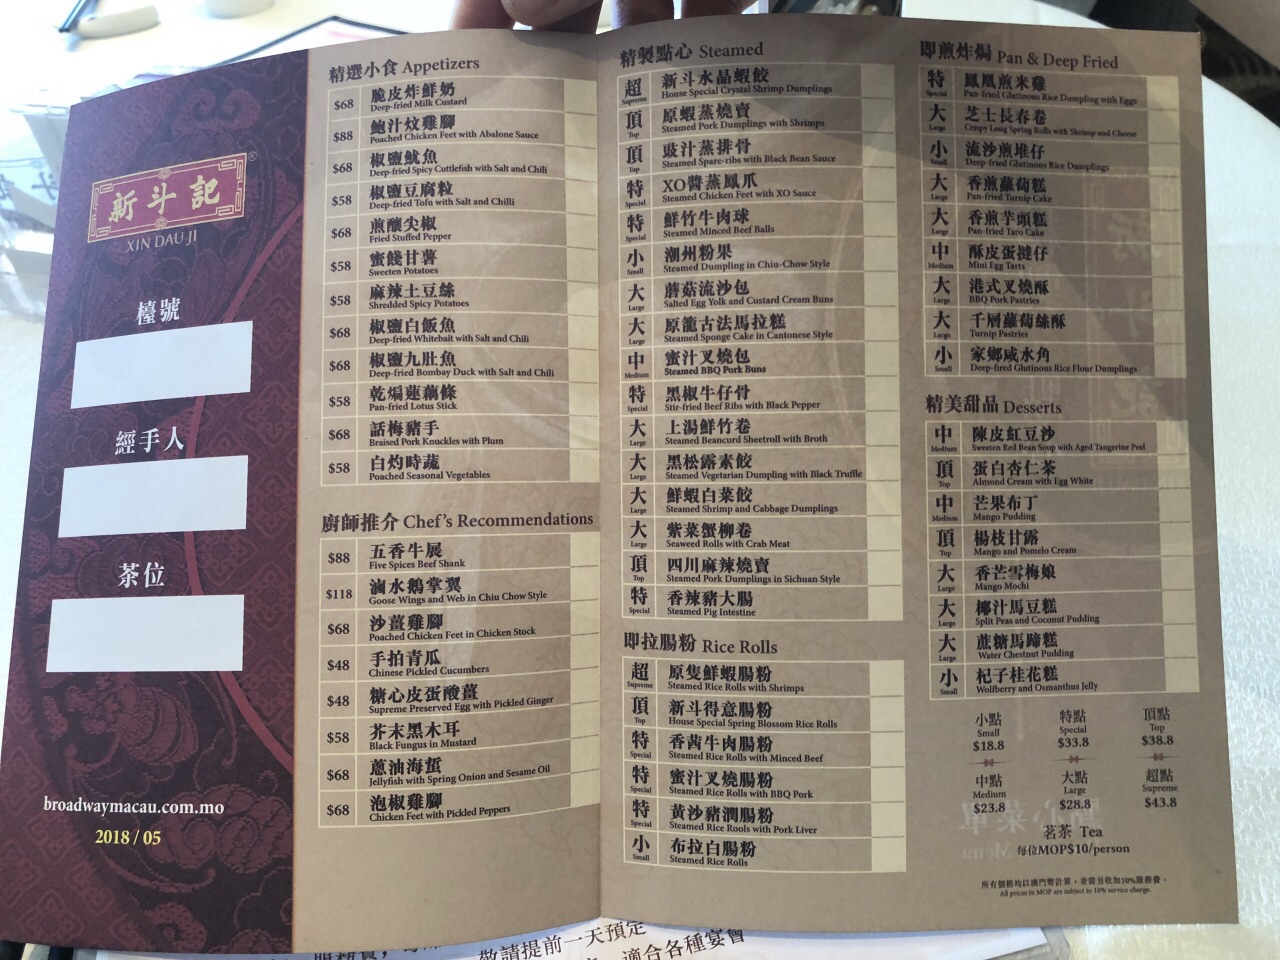 新斗記
®
XIN DAU JI
檯號
經手人
茶位
broadwaymacau.com.mo
2018 / 05
精選小食 Appetizers
$68 脆皮炸鮮奶
Deep-fried Milk Custard
$88 鮑汁炆雞腳
Poached Chicken Feet with Abalone Sauce
$68 椒鹽魷魚
Deep-fried Spicy Cuttlefish with Salt and Chili
$58 椒鹽豆腐粒
Deep-fried Tofu with Salt and Chilli
$68 煎釀尖椒
Fried Stuffed Pepper
$58 蜜餞甘薯
Sweeten Potatoes
$58 麻辣土豆絲
Shredded Spicy Potatoes
$68 椒鹽白飯魚
Deep-fried Whitebait with Salt and Chili
$68 椒鹽九肚魚
Deep-fried Bombay Duck with Salt and Chili
$58 乾煸蓮藕條
Pan-fried Lotus Stick
$68 話梅豬手
Braised Pork Knuckles with Plum
$58 白灼時蔬
Poached Seasonal Vegetables
廚師推介 Chef's Recommendations
$88 五香牛展
Five Spices Beef Shank
$118 滷水鵝掌翼
Goose Wings and Web in Chiu Chow Style
$68 沙薑雞腳
Poached Chicken Feet in Chicken Stock
$48 手拍青瓜
Chinese Pickled Cucumbers
$48 糖心皮蛋酸薑
Supreme Preserved Egg with Pickled Ginger
$58 芥末黑木耳
Black Fungus in Mustard
$68 蔥油海蜇
Jellyfish with Spring Onion and Sesame Oil
$68 泡椒雞腳
Chicken Feet with Pickled Peppers
精製點心 Steamed
超 新斗水晶蝦餃
Supreme House Special Crystal Shrimp Dumplings
頂 原蝦蒸燒賣
Top Steamed Pork Dumplings with Shrimps
頂 豉汁蒸排骨
Top Steamed Spare-ribs with Black Bean Sauce
特 XO醬蒸鳳爪
Special Steamed Chicken Feet with XO Sauce
特 鮮竹牛肉球
Special Steamed Minced Beef Balls
小 潮州粉果
Small Steamed Dumpling in Chiu-Chow Style
大 蘑菇流沙包
Large Salted Egg Yolk and Custard Cream Buns
大 原籠古法馬拉糕
Large Steamed Sponge Cake in Cantonese Style
中 蜜汁叉燒包
Medium Steamed BBQ Pork Buns
特 黑椒牛仔骨
Special Stir-fried Beef Ribs with Black Pepper
大 上湯鮮竹卷
Large Steamed Beancurd Sheetroll with Broth
大 黑松露素餃
Large Steamed Vegetarian Dumpling with Black Truffle
大 鮮蝦白菜餃
Large Steamed Shrimp and Cabbage Dumplings
大 紫菜蟹柳卷
Large Seaweed Rolls with Crab Meat
頂 四川麻辣燒賣
Top Steamed Pork Dumplings in Sichuan Style
特 香辣豬大腸
Special Steamed Pig Intestine
即拉腸粉 Rice Rolls
超 原隻鮮蝦腸粉
Supreme Steamed Rice Rolls with Shrimps
頂 新斗得意腸粉
Top House Special Spring Blossom Rice Rolls
特 香茜牛肉腸粉
Special Steamed Rice Rolls with Minced Beef
特 蜜汁叉燒腸粉
Special Steamed Rice Rolls with BBQ Pork
特 黃沙豬潤腸粉
Special Steamed Rice Rools with Pork Liver
小 布拉白腸粉
Small Steamed Rice Rolls
即煎炸焗 Pan & Deep Fried
特 鳳凰煎米雞
Special Pan-fried Glutinous Rice Dumpling with Eggs
大 芝士長春卷
Large Crispy Long Spring Rolls with Shrimp and Cheese
小 流沙煎堆仔
Small Deep-fried Glutinous Rice Dumplings
大 香煎蘿蔔糕
Large Pan-fried Turnip Cake
大 香煎芋頭糕
Large Pan-fried Taro Cake
中 酥皮蛋撻仔
Medium Mini Egg Tarts
大 港式叉燒酥
Large BBQ Pork Pastries
大 千層蘿蔔絲酥
Large Turnip Pastries
小 家鄉咸水角
Small Deep-fired Glutinous Rice Flour Dumplings
精美甜品 Desserts
中 陳皮紅豆沙
Medium Sweeten Red Bean Soup with Aged Tangerine Peel
頂 蛋白杏仁茶
Top Almond Cream with Egg White
中 芒果布丁
Medium Mango Pudding
頂 楊枝甘露
Top Mango and Pomelo Cream
大 香芒雪梅娘
Large Mango Mochi
大 椰汁馬豆糕
Large Split Peas and Coconut Pudding
大 蔗糖馬蹄糕
Large Water Chestnut Pudding
小 杞子桂花糕
Small Wolfberry and Osmanthus Jelly
小點 特點 頂點
Small Special Top
$18.8 $33.8 $38.8
中點 大點 超點
Medium Large Supreme
$23.8 $28.8 $43.8
茗茶 Tea
每位MOP$10/person
所有價格均以澳門幣計算，並需另收加10%服務費。
All prices in MOP are subject to 10% service charge.
敬請提前一天預定
適合各種宴會